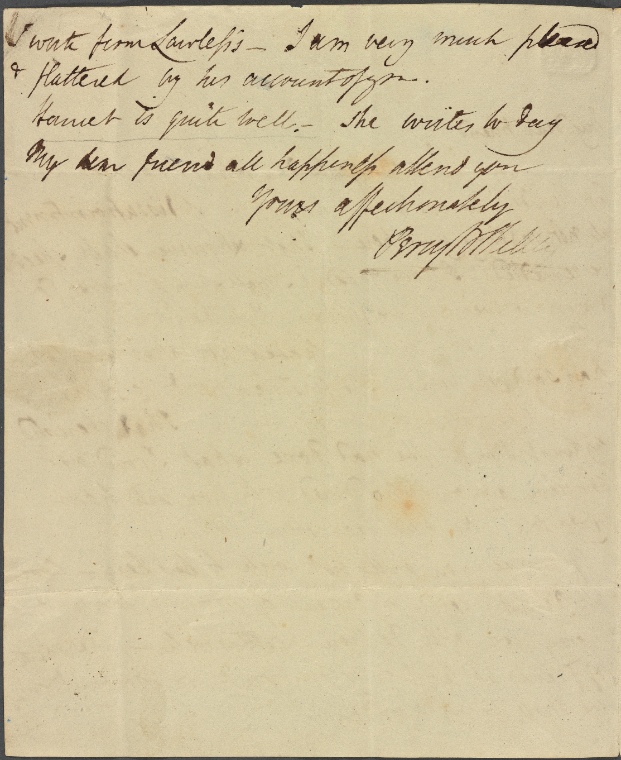 I write from Lawless's – I am very much pleased
& flattered by his account of you.
Harriet is quite well. – She writes to day
My dear friend all happiness attend you
Yours affectionately
Percy B Shelley